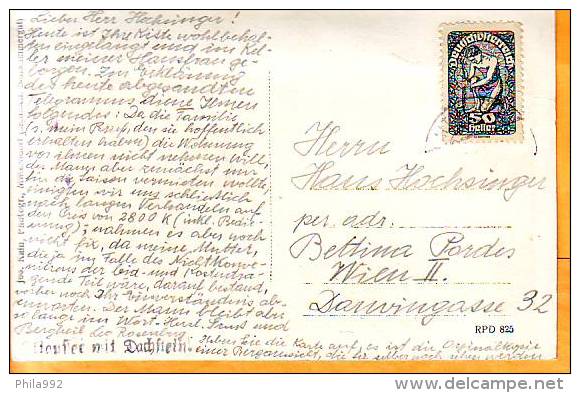 Lieber Herr Hochsinger!
Heute ist Ihre Kiste wohlbehal-
ten eingelangt und im Kel-
ler meiner Hausfrau ge-
borgen. Zur Erklärung
des heute abgesandten
Telegramms diene Ihnen
folgendes: Da die Familie
(s. mein Brief, den sie hoffentlich
erhalten haben) die Wohnung
von ihnen nicht nehmen will,
der Mann aber zunächst nur
für die Saison vermieten wollte,
einigten wir uns schließlich
nach langen Verhandeln auf
den Preis von 2800 K (inkl.
nahmen es aber noch
nicht fix, da meine Mutter,
die ja im Falle des Nicht
der leid- und Kostentra-
gende Teil wäre, darauf bestand,
vorher noch Ihr Einverständnis ab-
zuwarten. Der Mann bleibt aber
so lange im Wort. Herzl. Gruss und
Bergheil Leo Rosenberg
mit Dachstein
Heben Sie die Karte auf, es ist die Originalkopie
einer Bergansicht, die Sie selber noch sehen werden
Deutschösterreich
50
Heller
Herrn
Hans Hochsinger
per adr.
Bettina Pordes
Wien II.
Darwingasse 32
RPD 825
Phila992
http://www.delcampe.net